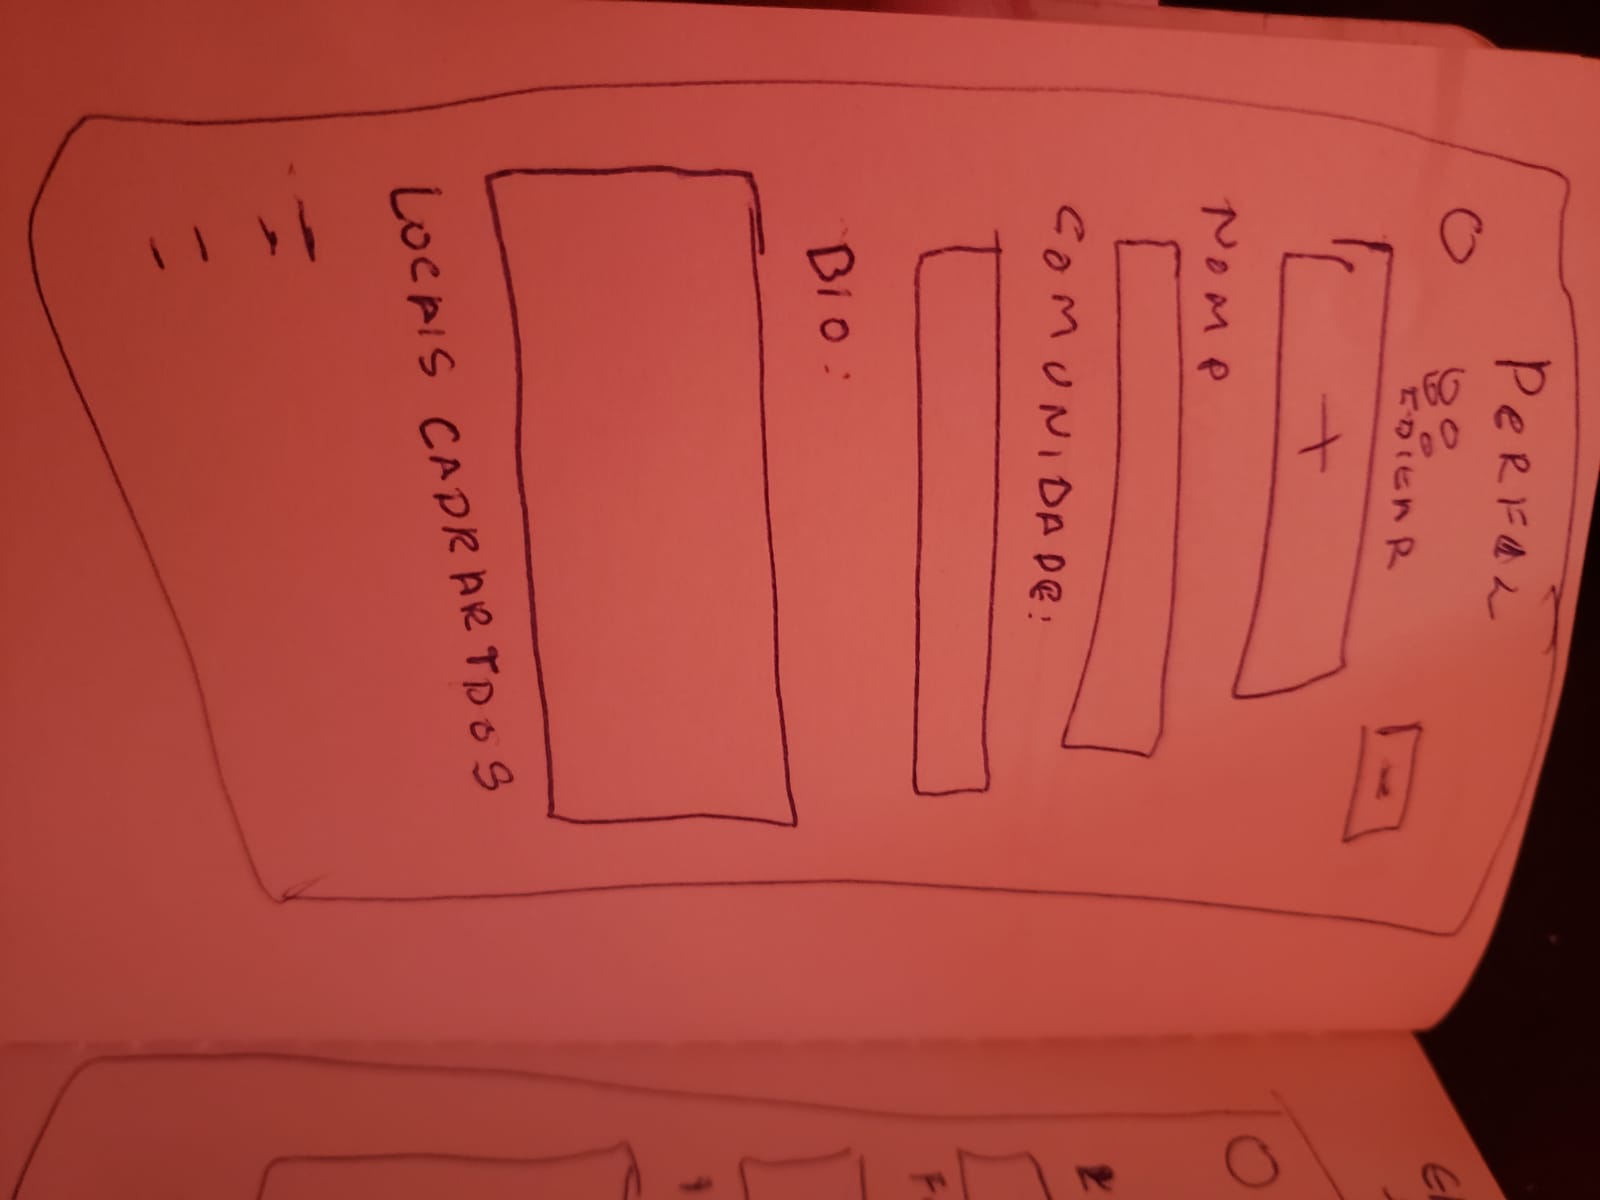 PERFIL
EDICAR
+
-
NOMe
COMUNIDADE:
BIO:
LOCAIS CADRARTDOS